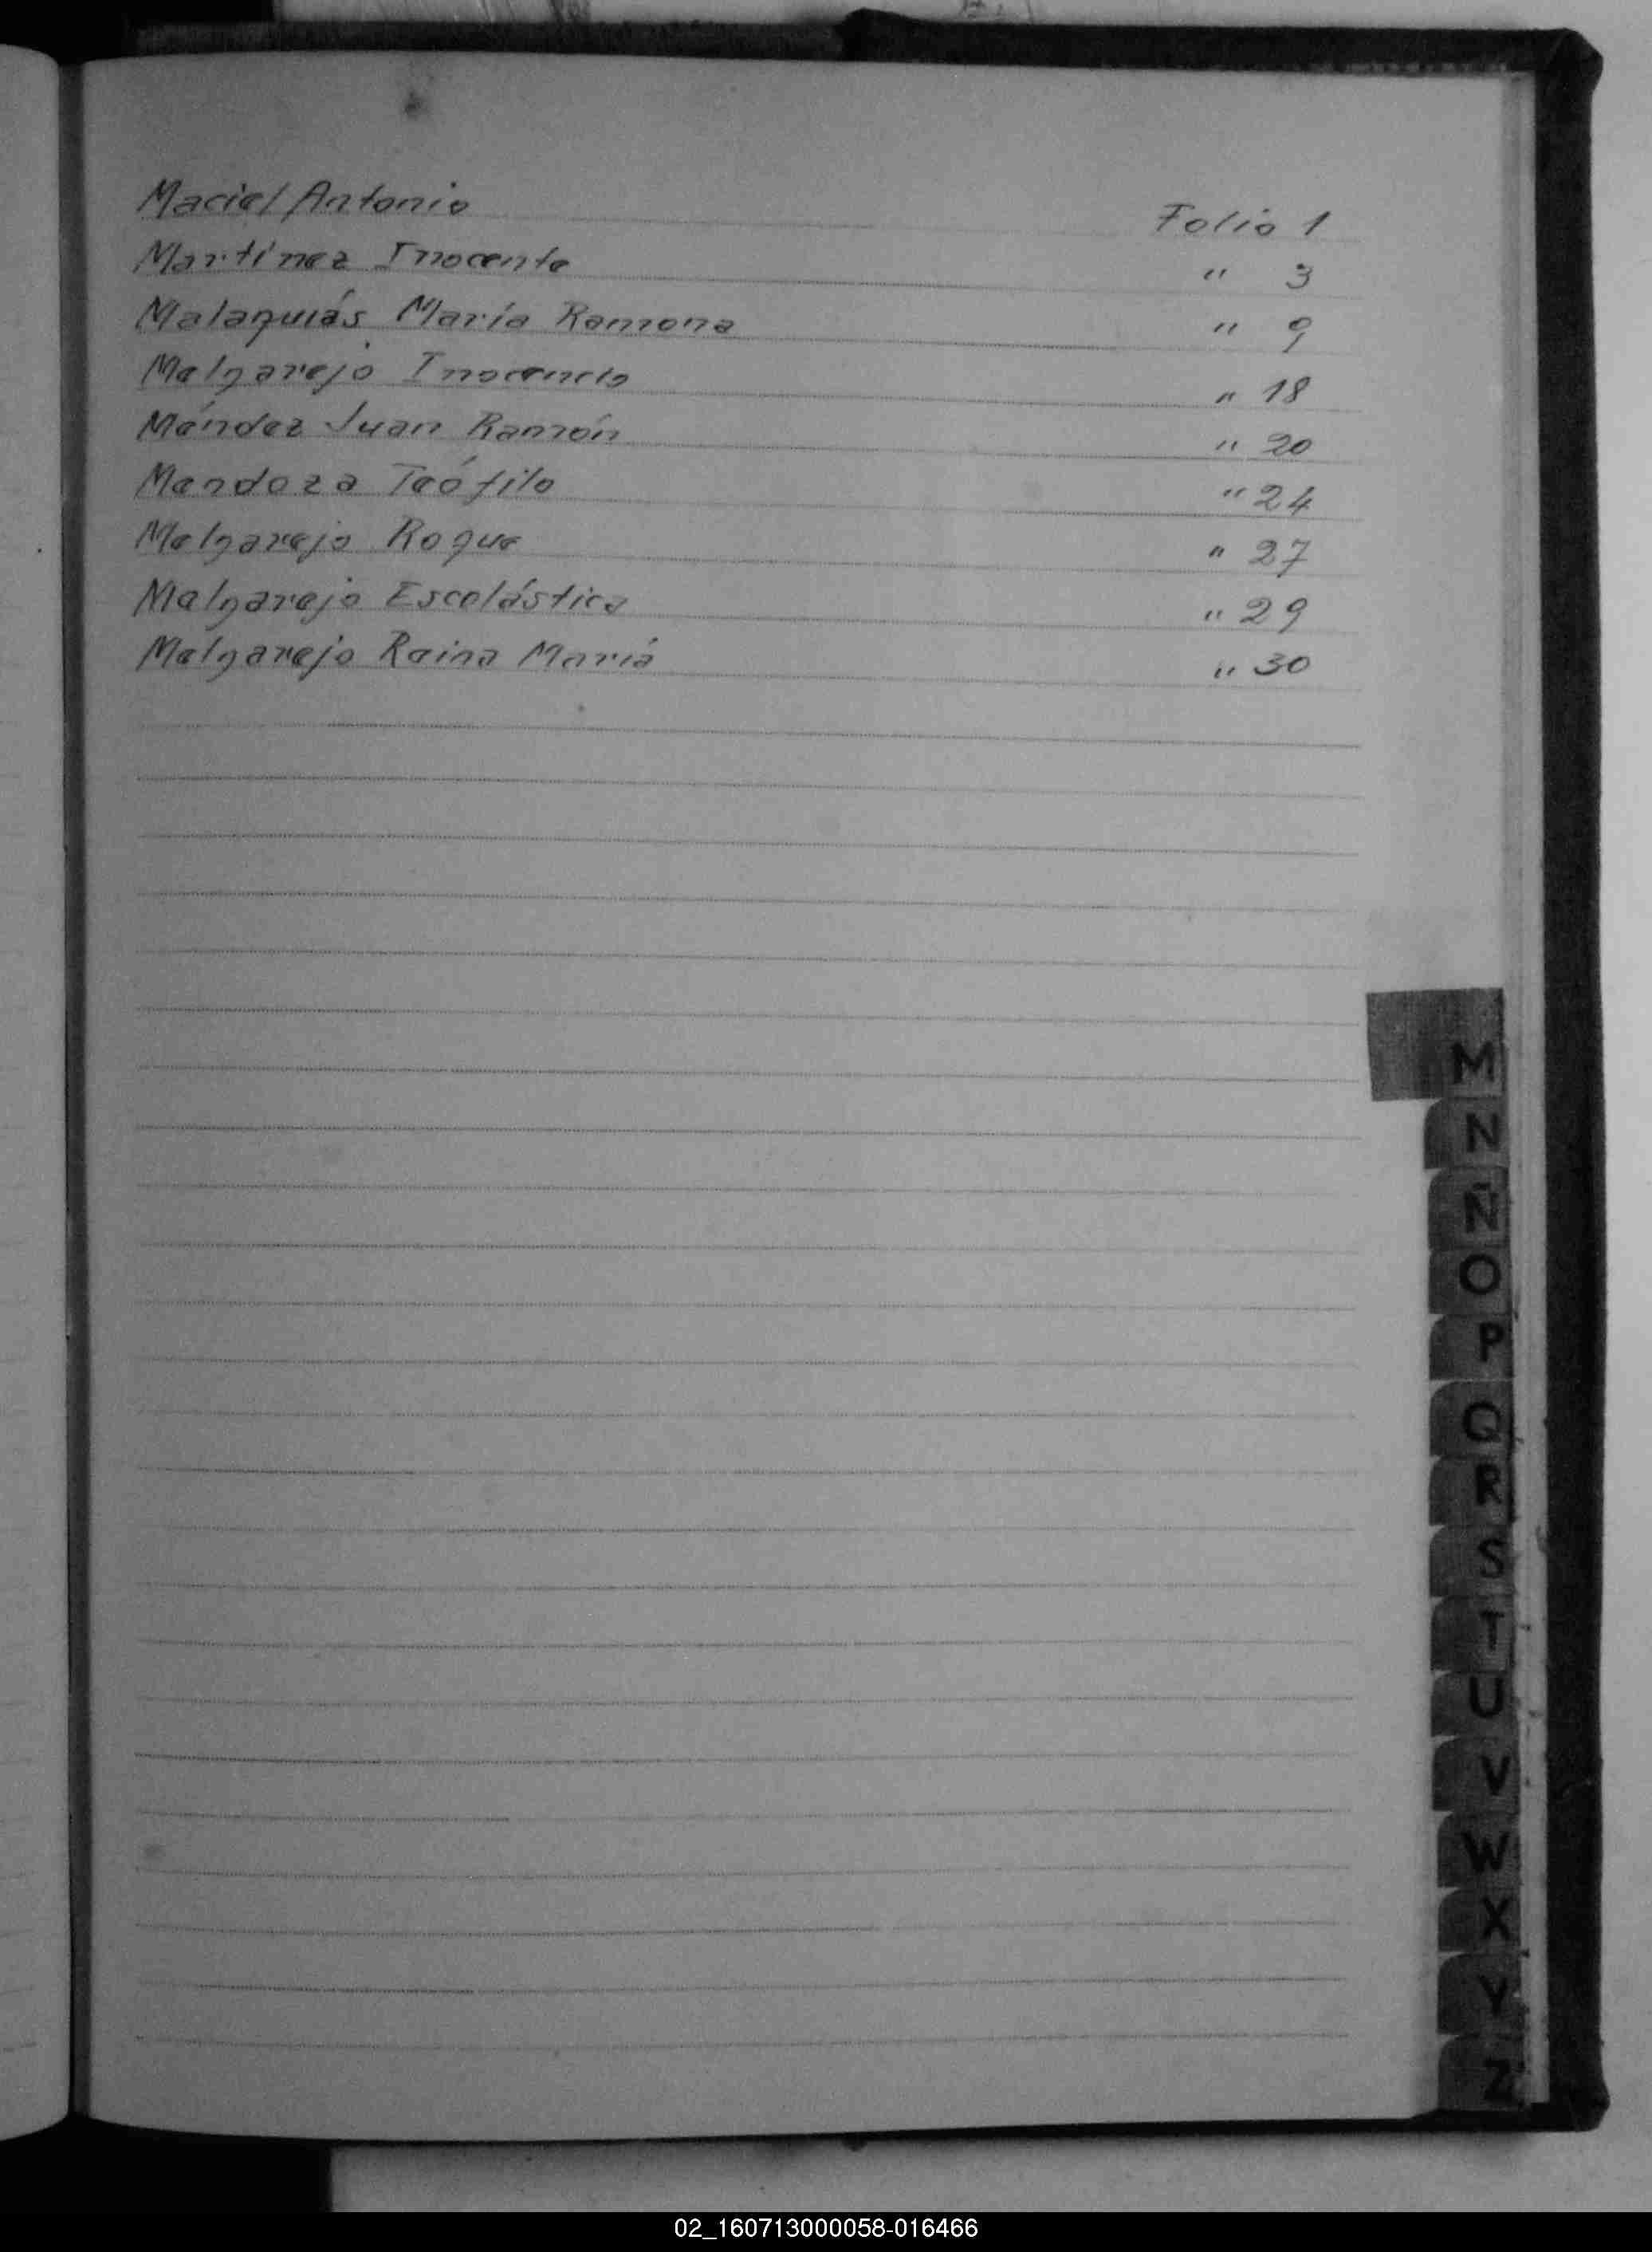 Maciel Antonio Folio 1
Martínez Inocente " 3
Malaquiás María Ramona " 9
Melgarejo Inocencio " 18
Méndez Juan Ramón " 20
Mendoza Teófilo " 24
Melgarejo Roque " 27
Melgarejo Escolástica " 29
Melgarejo Reina Mariá " 30
M
N
Ñ
O
P
Q
R
S
T
U
V
W
X
Y
Z
02_160713000058-016466